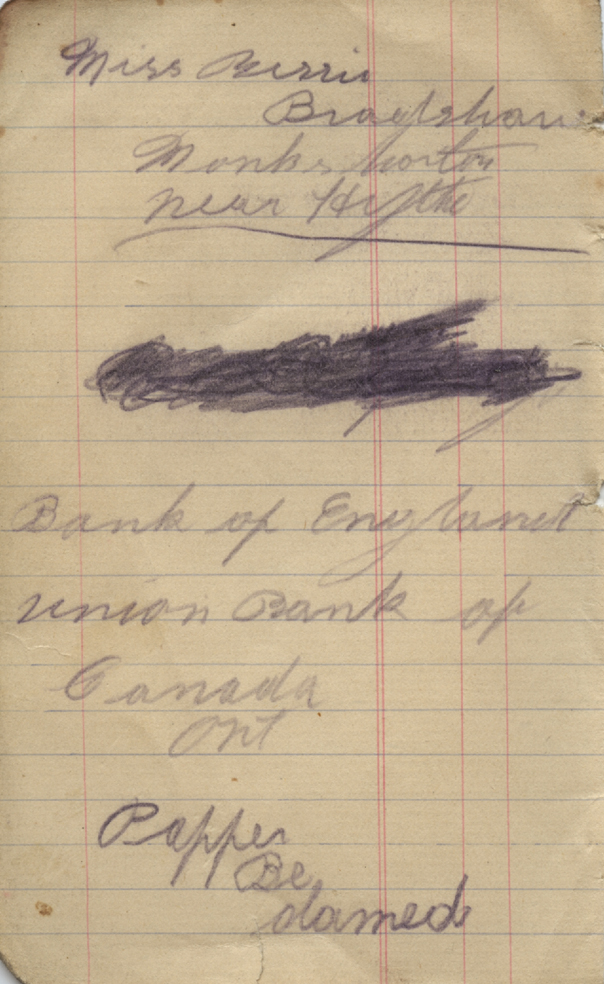 Miss Bessie
Bradshaw
Monks horton
near Hythe
Bank of England
union Bank of
Canada
Ont
Papper
Be
damed